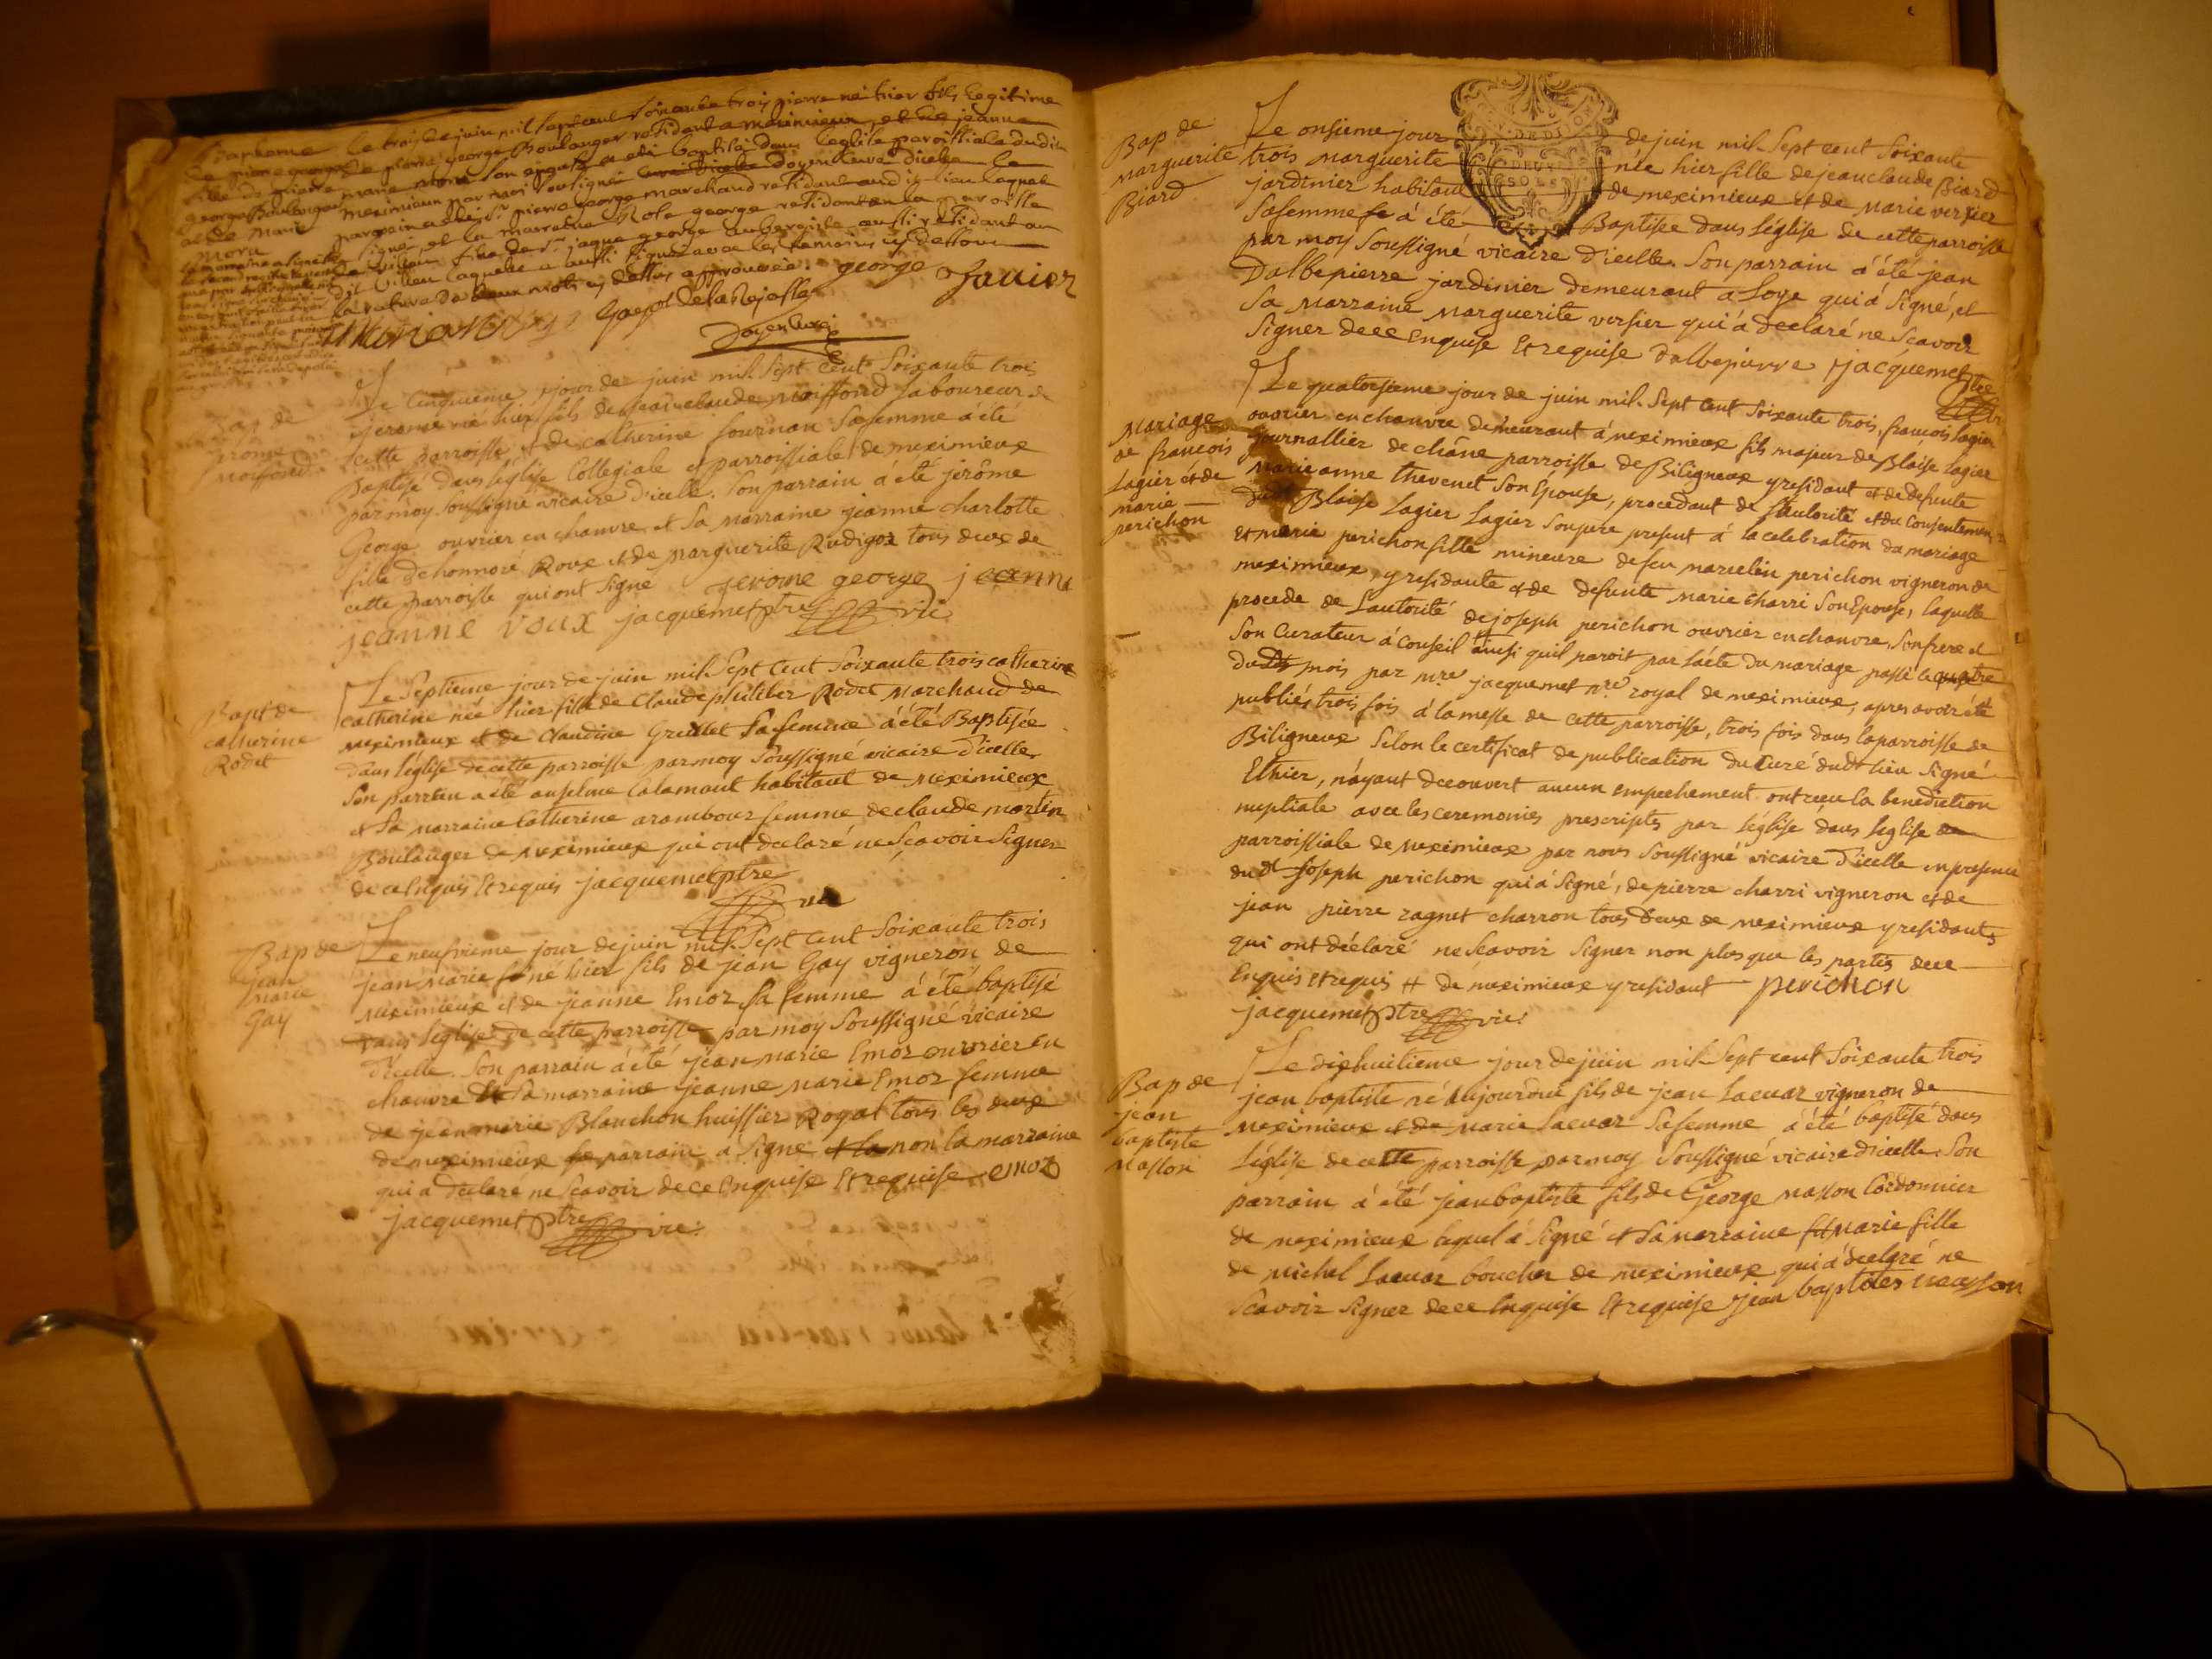 Bapteme
de pierre george
fils de pierre
george Boulanger
et de Marie
Mora
le trois de juin mil sept cent soixante trois pierre né hier fils legitime
de pierre george Boulanger residant a meximieux, et de jeanne
marie mora son epouse a eté baptisé dans leglise paroissiale dudit
meximieux par moi soussigné curé d'icelle Doyen curé d'icelle le
parrain a eté Sr pierre george marchand residant audit lieu lequel
a signé, et la marraine Rose george residante en la paroisse
de fille de Sr jaque george aubergiste aussi residant au
dit lieu laquelle a aussi signé avec les temoins cy dessous
la rature de deux mots cy dessus approuvée. george Javier
Doyen Curé
Bap de
jerome
moiffond
Le Cinquieme jour de juin mil Sept Cent Soixante trois
jerome né hier fils de jean claude moiffond laboureur de
cette parroisse et de catherine fournan Sa femme a été
Baptisé dans léglise Collegiale et parroissiale de meximieux
par moy Soussigné vicaire d'icelle. Son parrain á été jerôme
George ouvrier en chanvre et Sa marraine jeanne charlotte
fille de honnoré Roux et de marguerite Rudigoz tous deux de
cette parroisse qui ont signé jerome george jeanne
jeanne roux jacquemet ptre vic.
Bapt de
catherine
Rodet
Le Septieme jour de juin mil Sept Cent Soixante trois catherine
catherine née hier fille de Claude philiber Rodet Marchand de
meximieux et de Claudine Greillet Sa femme á été Baptisée
dans léglise de cette parroisse par moy Soussigné vicaire d'icelle
Son parrein a été anselme Calamant habitant de meximieux
et Sa marraine Catherine arambour femme de claude martin
Boulanger de meximieux qui ont declaré ne Sçavoir Signer
de ce Enquis Et requis jacquemet ptre
vic
Bap de
jean
marie
Gay
Le neufvieme jour de juin mil Sept Cent Soixante trois
jean marie né hier fils de jean Gay vigneron de
meximieux et de jeanne Emoz Sa femme á été baptisé
dans léglise de cette parroisse par moy Soussigné vicaire
d'icelle. Son parrain á été jean marie Emoz ouvrier en
chanvre Et Sa marraine jeanne marie Emoz femme
de jean marie Blanchon huissier Royal tous les deux
de meximieux le parrain a Signe et la non la marraine
qui a declaré ne Scavoir de ce Enquise Et requise emoz
jacquemet ptre vic:
Bap de
marguerite
Biard
Le onsieme jour de juin mil Sept cent Soixante
trois marguerite née hier fille de jean claude Biard
jardinier habitant de meximieux et de Marie versier
Sa femme á été Baptisée dans léglise de cette parroisse
par moy Soussigné vicaire d'icelle. Son parrain á été jean
Dalbepierre jardinier demeurant a Loye qui á Signé, et
Sa Marraine Marguerite versier qui á declaré ne Scavoir
Signer de ce Enquise Et requise dalbepierre jacquemet ptre
Mariage
de francois
Lagier et de
marie
perichon
Le quatorsieme jour de juin mil Sept Cent Soixante trois, francois Lagier
ouvrier en chanvre demeurant á meximieux fils majeur de Blaise Lagier
journallier de châne parroisse de Biligneux y residant et de defunte
Marie anne thevenet Son Epouse, procedant de l'autorité et du Consentement
dudt Blaise Lagier Lagier Son pere present á la celebration du mariage
Et marie perichon fille mineure de feu marcelin perichon vigneron de
meximieux, y residante et de defunte marie Charri Son Epouse, laquelle
procede de L'autorité de joseph perichon ouvrier en chanvre, Son frere et
Son Curateur á Conseil ainsi quil paroit par l'acte du mariage passé le quatre
dudt mois par mre jacquemet nre royal de meximieux, apres avoir été
publiés trois fois á la messe de cette parroisse, trois fois dans la parroisse de
Biligneux Selon le certificat de publication du Curé dudt lieu Signé
Ethier, n'ayant decouvert aucun empechement ont recu la benediction
nuptiale avec les ceremonies prescriptes par léglise dans leglise
parroissiale de meximieux par nous Soussigné vicaire d'icelle en presence
dudt joseph perichon qui á Signé, de pierre charri vigneron et de
jean pierre ragnet charron tous deux de meximieux y residants
qui ont déclaré ne Scavoir Signer non plus que les parties de ce
Enquis et requis # de meximieux y residant perichon
jacquemet ptre vic:
Bap de
jean
baptiste
Masson
Le dixhuitieme jour de juin mil Sept cent Soixante trois
jean baptiste né aujourdui fils de jean Lacuar vigneron de
meximieux et de Marie Lacuar Sa femme á été baptisé dans
léglise de cette parroisse par moy Soussigné vicaire d'icelle. Son
parrain á été jean baptiste fils de George masson Cordonnier
de meximieux lequel á Signé et Sa marraine Marie fille
de michel Lacuar boucher de meximieux qui á declaré ne
Scavoir Signer de ce Enquise Et requise jean baptites masson